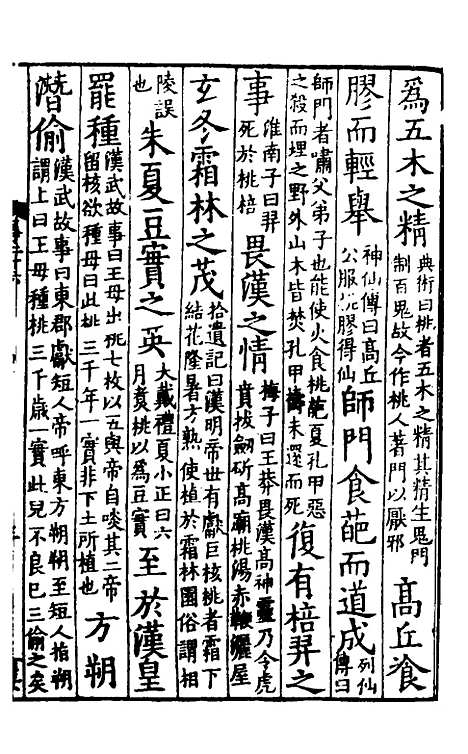 爲五木之精
典術曰桃者五木之精其精生鬼門
制百鬼故今作桃人著門以厭邪
高丘飡
膠而輕舉
神仙傳曰高丘
公服桃膠得仙
師門食葩而道成
列仙
傳曰
師門者嘯父弟子也能使火食桃葩夏孔甲惡
之殺而埋之野外山木皆焚孔甲禱未還而死
復有棓羿之
事
淮南子曰羿
死於桃棓
畏漢之情
梅子曰王莽畏漢高神靈乃令虎
賁拔劒斫高廟桃湯赤鞭灑屋
玄冬霜林之茂
拾遺記曰漢明帝世有獻巨核桃者霜下
結花隆暑方熟使植於霜林園俗謂相
陵誤
也
朱夏豆實之英
大戴禮夏小正曰六
月煑桃以爲豆實
至於漢皇
罷種
漢武故事曰王母出桃七枚以五與帝自啖其二帝
留核欲種母曰此桃三千年一實非下土所植也
方朔
潛偷
漢武故事曰東郡獻短人帝呼東方朔朔至短人指朔
謂上曰王母種桃三千歲一實此兒不良已三偷之矣